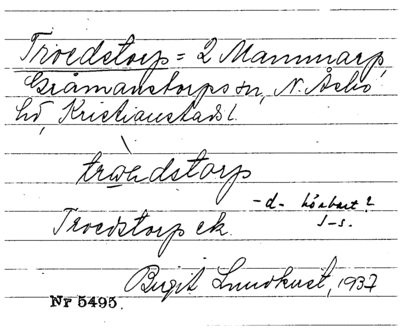 Troedstorp = 2 Mammarp,
Gråmanstorps sn, N. Åsbo
hd, Kristianstads l.
Troedstorp ek.
-d- hörbart?
J-s.
Birgit Lundkvist, 1937
Nr 5495.